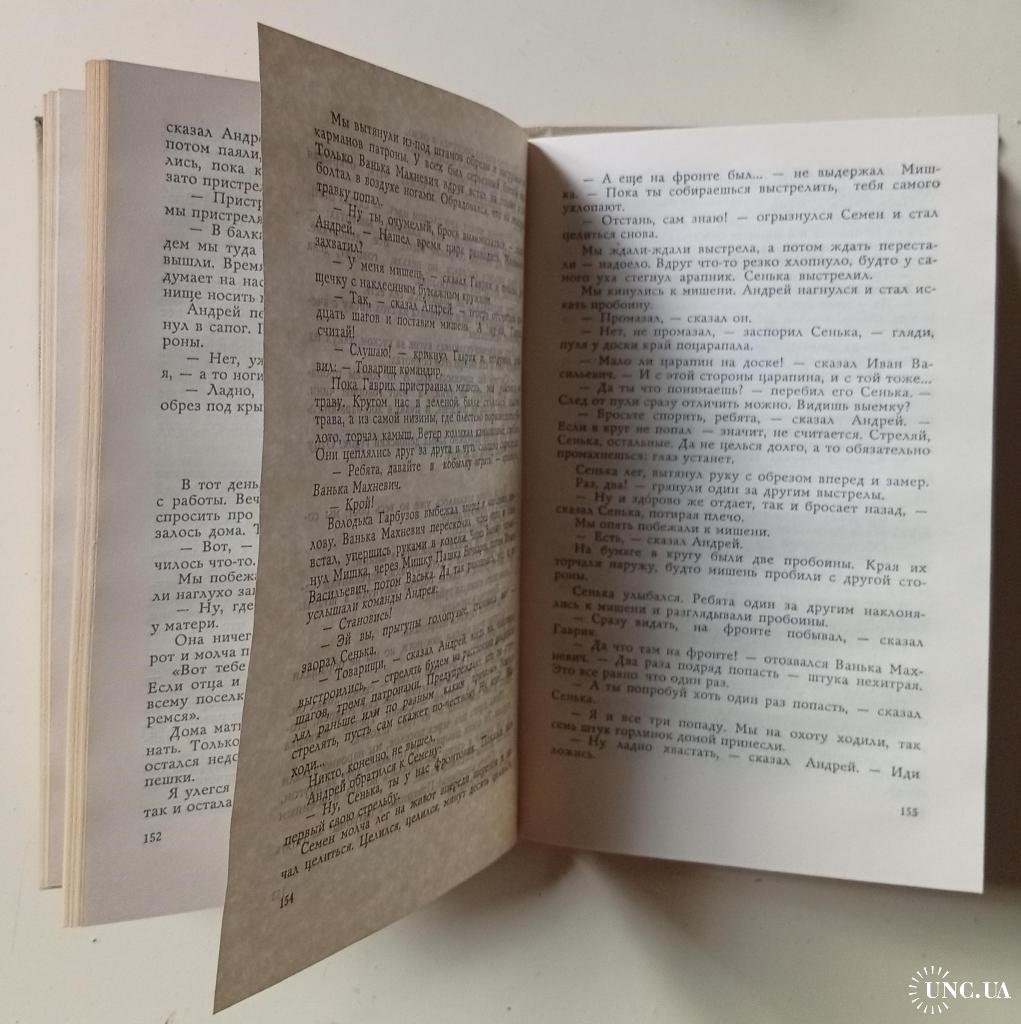 сказал Андре
потом паяли,
лись, пока к
зато пристрел
— Пристр
мы пристреля
— В балка
дем мы туда
вышли. Время
думает на нас
нище носить н
Андрей пе
нул в сапог. П
роны.
— Нет, уж
я, — а то ноги
— Ладно,
обрез под кры
В тот день
с работы. Веч
спросить про
залось дома. Т
— Вот, —
чилось что-то.
Мы побежа
ли наглухо за
— Ну, где
у матери.
Она ничег
рот и молча п
«Вот тебе
Если отца и
всему поселк
ремся».
Дома мать
нать. Только
остался недо
пешки.
Я улегся
так и остала
152
Мы вытянули из-под штанов обрезы и
карманов патроны. У всех был серьезный
Только Ванька Махневич вдруг встал на
болтал в воздухе ногами. Обрадовался, что на
травку попал.
— Ну ты, очумелый, брось
Андрей. — Нашел время цирк разводить.
захватил?
— У меня мишень, — сказал Гаврик и
щечку с наклеенным бумажным кружком.
— Так, — сказал Андрей, — теперь отсчитай
дцать шагов и поставим мишень. А ну,
считай!
— Слушаю! — крикнул Гаврик и
вил: — Товарищ командир.
Пока Гаврик пристраивал мишень, мы
траву. Кругом нас в зеленой балке
трава, а из самой низины, где блестело
лото, торчал камыш. Ветер колыхал камышины,
Они цеплялись друг за друга и чуть слышно
— Ребята, давайте в кобылку играть —
Ванька Махневич.
— Крой!
Володька Гарбузов выбежал вперед и
лову. Ванька Махневич перескочил
встал, упершись руками в колени.
нул Мишка, через Мишку Пашка
Васильевич, потом Васька. Да так
услышали команды Андрея:
— Становись!
— Эй вы, прыгуны голопузые,
заорал Сенька.
— Товарищи, — сказал Андрей, когда мы
выстроились, — стрелять будем на расстоянии
шагов, тремя патронами. Предупреждаю: кто не
лял раньше или по разным каким причинам не
стрелять, пусть сам скажет по-честному. Ну,
ходи...
Никто, конечно, не вышел.
Андрей обратился к Семену:
— Ну, Сенька, ты у нас фронтовик.
первый свою стрельбу.
Семен молча лег на живот впереди шеренги и на-
чал целиться. Целился, целился, минут десять
154
— А еще на фронте был... — не выдержал Миш-
ка. — Пока ты собираешься выстрелить, тебя самого
ухлопают.
— Отстань, сам знаю! — огрызнулся Семен и стал
целиться снова.
Мы ждали-ждали выстрела, а потом ждать переста-
ли — надоело. Вдруг что-то резко хлопнуло, будто у са-
мого уха стегнул арапник. Сенька выстрелил.
Мы кинулись к мишени. Андрей нагнулся и стал ис-
кать пробоину.
— Промазал, — сказал он.
— Нет, не промазал, — заспорил Сенька, — гляди,
пуля у доски край поцарапала.
— Мало ли царапин на доске! — сказал Иван Ва-
сильевич. — И с этой стороны царапина, и с той тоже...
— Да ты что понимаешь? — перебил его Сенька. —
След от пули сразу отличить можно. Видишь выемку?
— Бросьте спорить, ребята, — сказал Андрей. —
Если в круг не попал — значит, не считается. Стреляй,
Сенька, остальные. Да не целься долго, а то обязательно
промахнешься: глаз устанет.
Сенька лег, вытянул руку с обрезом вперед и замер.
Раз, два! — грянули один за другим выстрелы.
— Ну и здорово же отдает, так и бросает назад, —
сказал Сенька, потирая плечо.
Мы опять побежали к мишени.
— Есть, — сказал Андрей.
На бумаге в кругу были две пробоины. Края их
торчали наружу, будто мишень пробили с другой сто-
роны.
Сенька улыбался. Ребята один за другим наклоня-
лись к мишени и разглядывали пробоины.
— Сразу видать, на фронте побывал, — сказал
Гаврик.
— Да что там на фронте! — отозвался Ванька Мах-
невич. — Два раза подряд попасть — штука нехитрая.
Это все равно что один раз.
— А ты попробуй хоть один раз попасть, — сказал
Сенька.
— Я и все три попаду. Мы на охоту ходили, так
семь штук горлинок домой принесли.
— Ну ладно хвастать, — сказал Андрей. — Иди
ложись.
155
UNC.UA